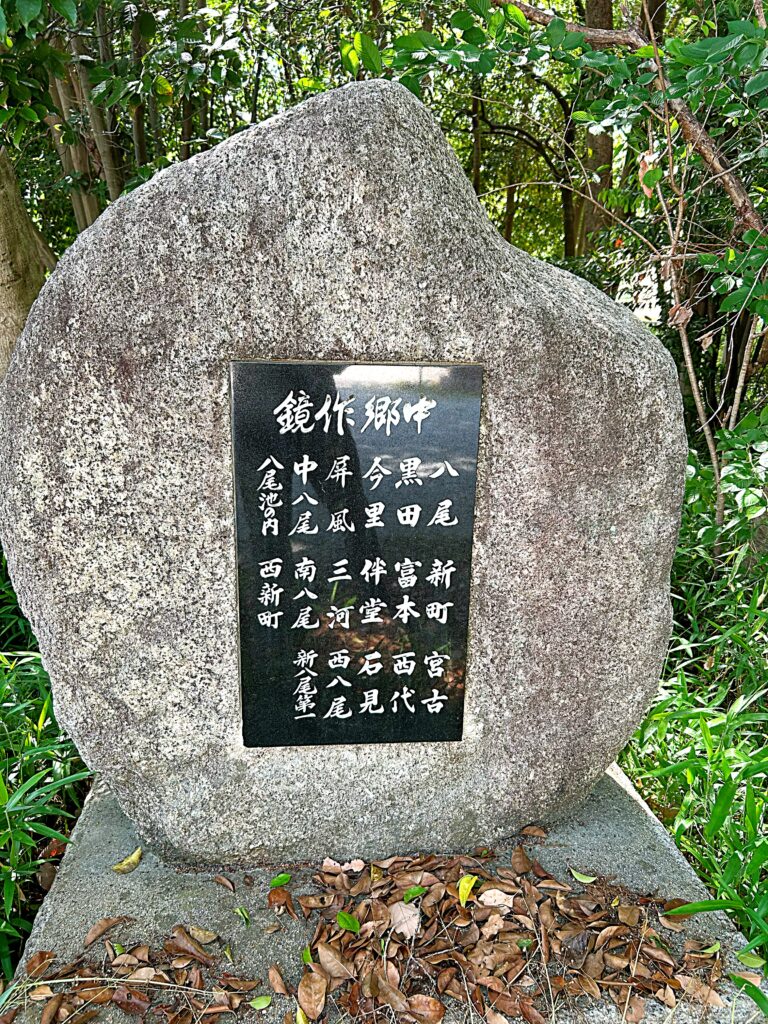 鏡作郷中
八尾 新町 宮古
黒田 富本 西代
今里 伴堂 石見
屏風 三河 西八尾
中八尾 南八尾 新八尾第一
八尾池の内 西新町